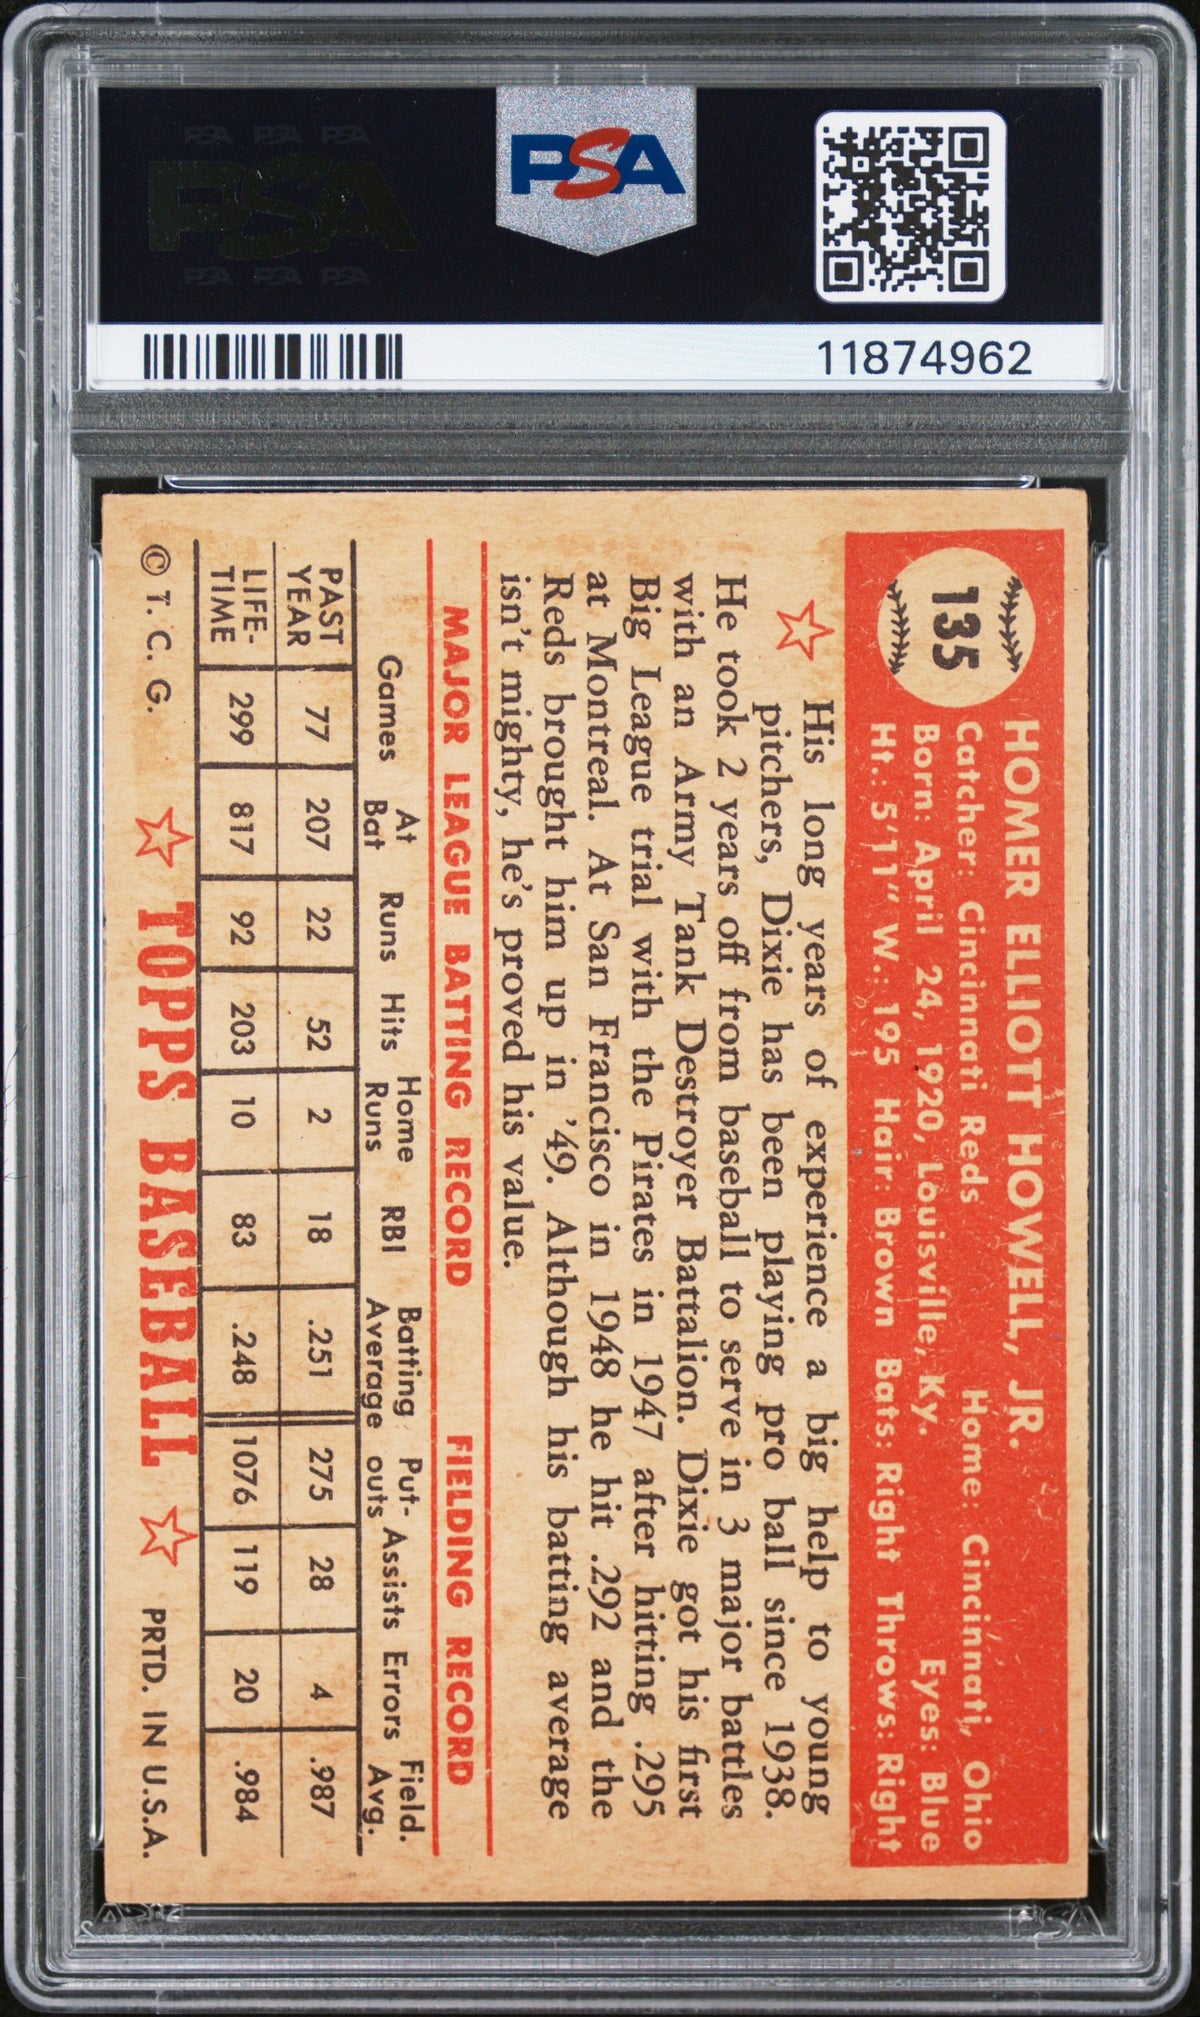 PSA PSA PSA
PSA
PSA PSA PSA
PSA
11874962
135
HOMER ELLIOTT HOWELL, JR.
Catcher: Cincinnati Reds Home: Cincinnati, Ohio
Born: April 24, 1920, Louisville, Ky. Eyes: Blue
Ht.: 5'11" W.: 195 Hair: Brown Bats: Right Throws: Right
His long years of experience a big help to young
pitchers, Dixie has been playing pro ball since 1938.
He took 2 years off from baseball to serve in 3 major battles
with an Army Tank Destroyer Battalion. Dixie got his first
Big League trial with the Pirates in 1947 after hitting .295
at Montreal. At San Francisco in 1948 he hit .292 and the
Reds brought him up in '49. Although his batting average
isn't mighty, he's proved his value.
MAJOR LEAGUE BATTING RECORD FIELDING RECORD
Games At Bat Runs Hits Home Runs RBI Batting Average Put-outs Assists Errors Field. Avg.
PAST YEAR 77 207 22 52 2 18 .251 275 28 4 .987
LIFE-TIME 299 817 92 203 10 83 .248 1076 119 20 .984
© T. C. G. TOPPS BASEBALL PRTD. IN U.S.A.
PSA
PSA